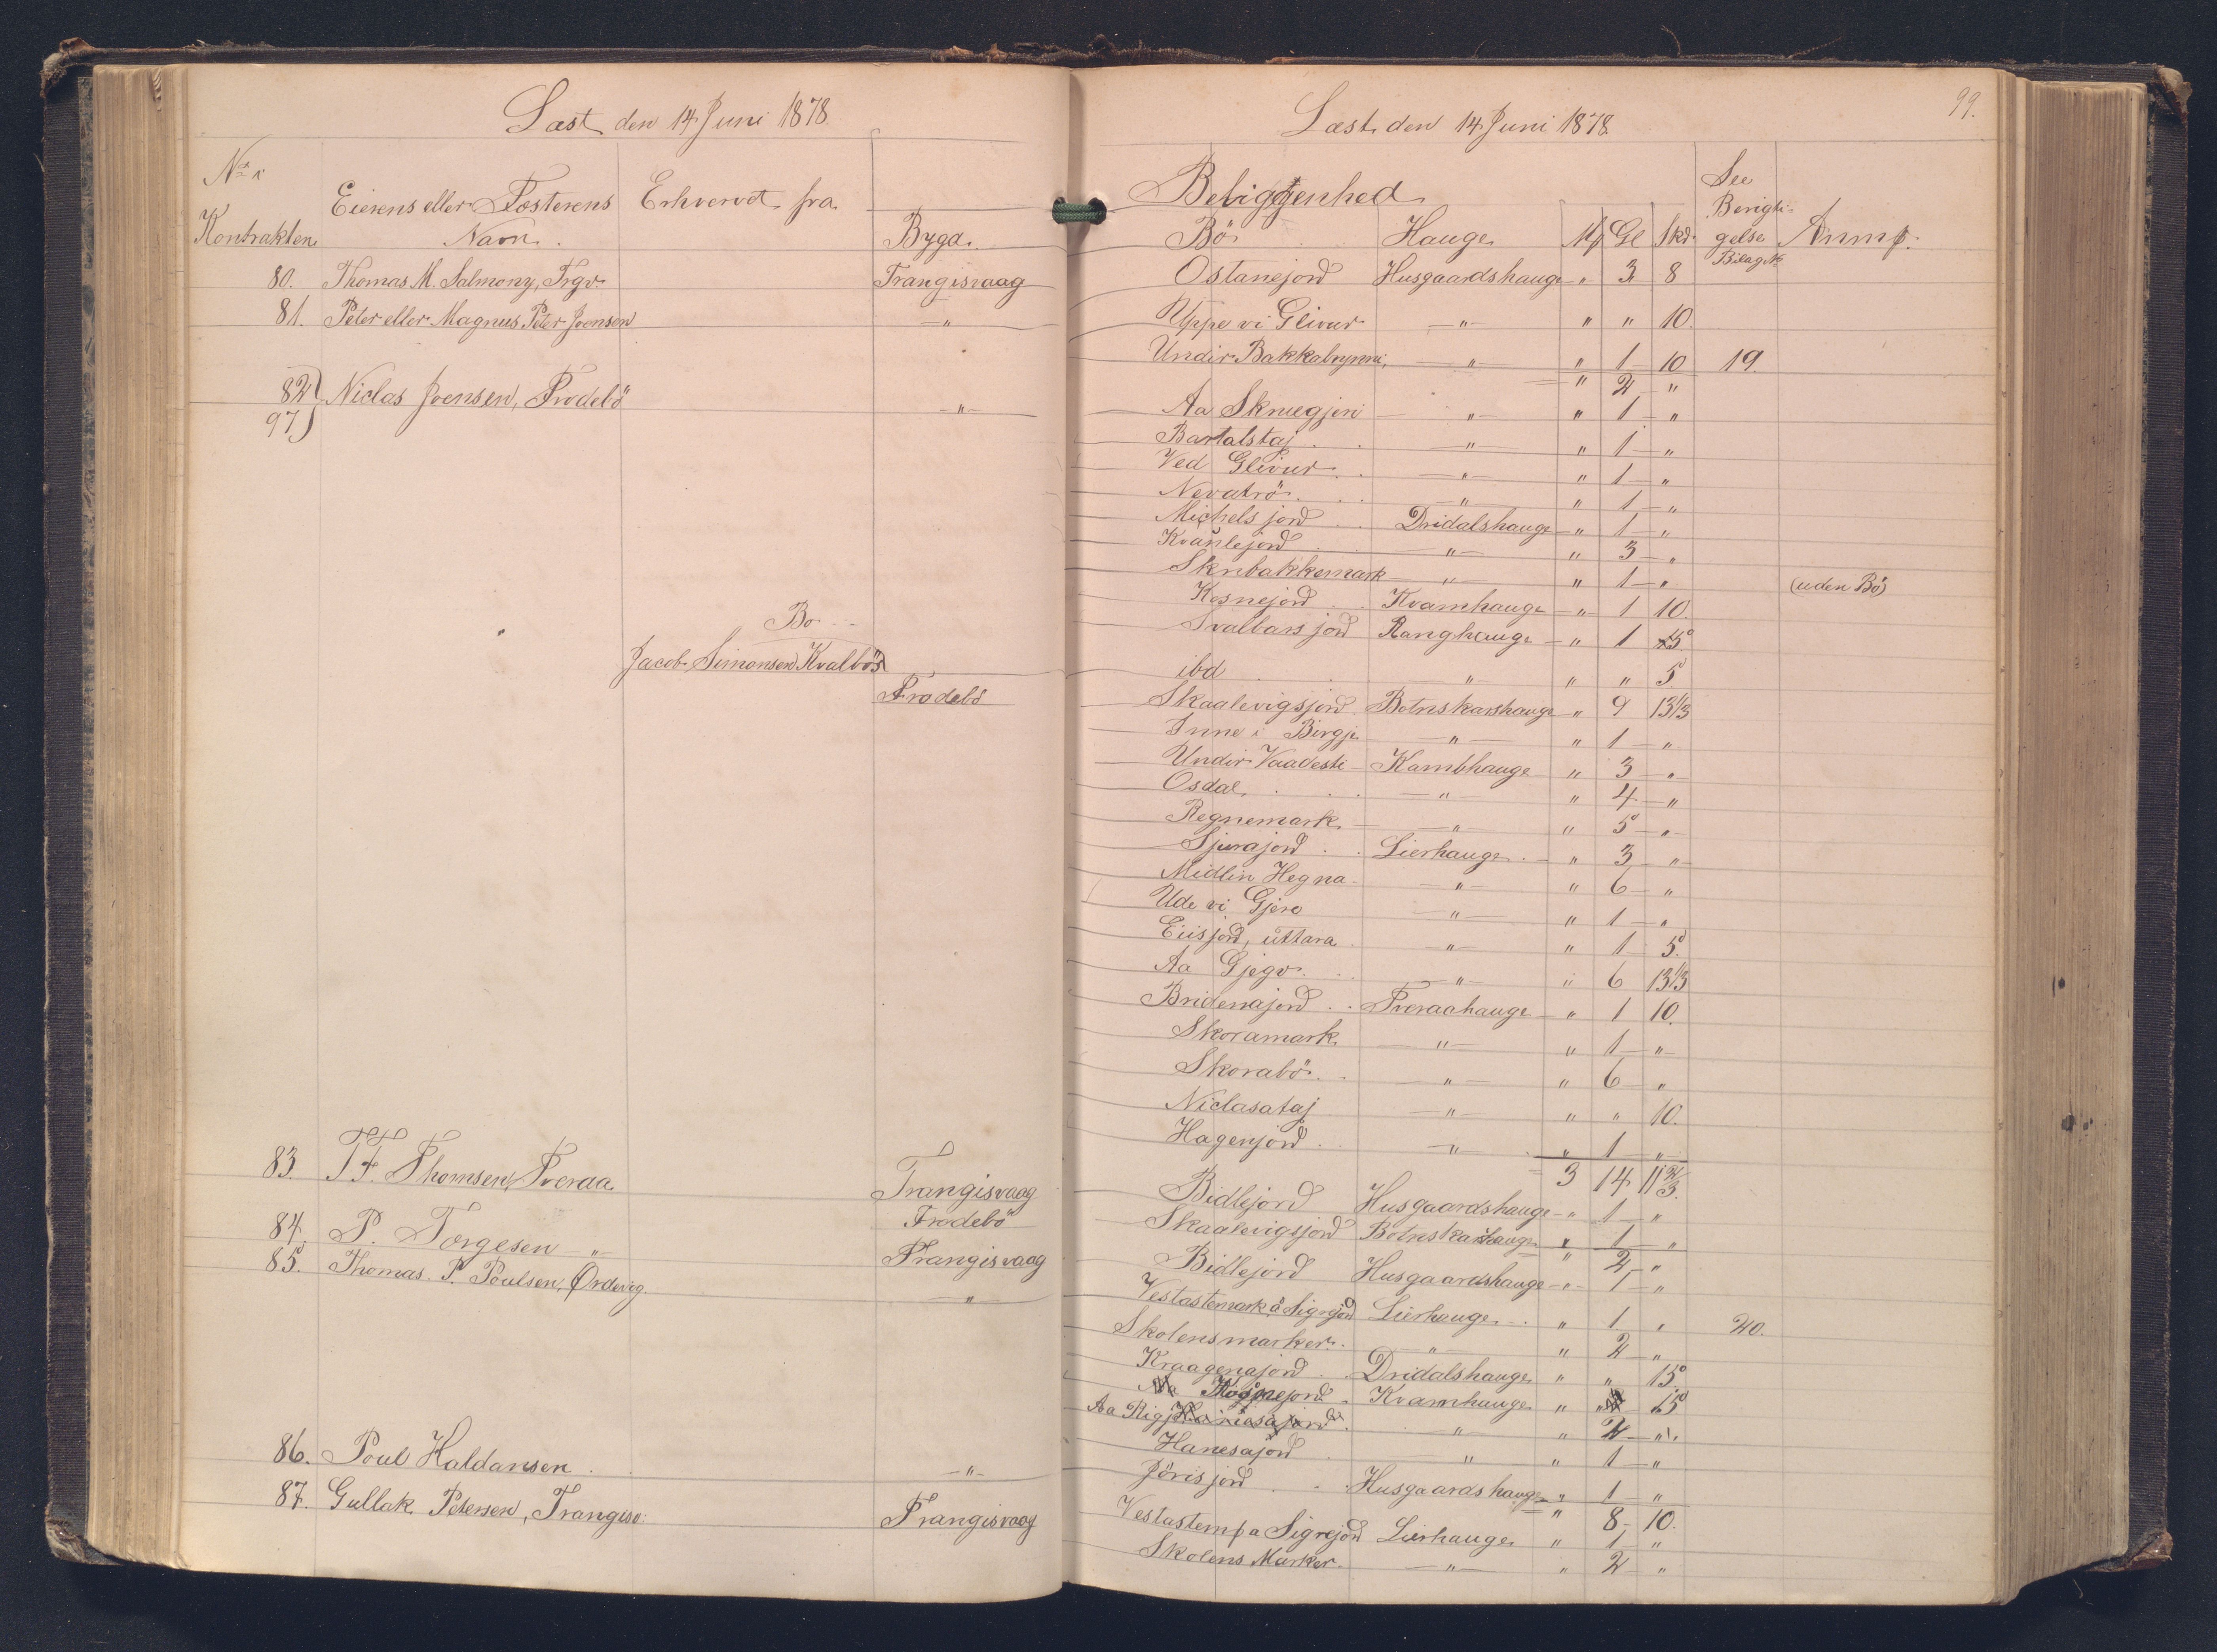 Læst den 14 Juni 1878.
No i Kontrakten
Eierens eller Fæsterens Navn.
Erhvervet fra
Bygd.
80. Thomas M. Salmony, Trgv. Trangisvaag
81. Peter eller Magnus Peter Joensen "
82) 97) Niclas Joensen, Frodebö "
Bo
Jacob Simonsen Kvalbö
Frodebö
83. T. F. Thomsen, Tveraa Trangisvaag
Frodebö
84. P. Torgesen " Trangisvaag
85. Thomas P. Poulsen, Ördevig. "
86. Poul Haldansen "
87. Gullak Petersen, Trangisv: Trangisvaag
Læst den 14 Juni 1878.
99.
Beliggenhed
Bö Hauge M Gl Skd.
See Berigtigelse Bilag No
Anm:
Ostanejord Husgaardshauge " 3 8
Uppe vi Glivur " " " 10.
Undir Bakkabrynni " " 1 10 19.
= " 2 "
Aa Skruegjeri " " 1 "
Bartalstaj " " 1 "
Ved Glivur " " 1 "
Nevatrö " " 1 "
Michels jord Dridalshauge " 1 "
Kvanlejord " " 3 "
Skribakkemark " " 1 " (uden Bö)
Kosnejord Kvamhauge " 1 10.
Svalbars jord Ranghauge " 1 5.
ibd " " " 5
Skaalevigsjord Botnskarshauge " 9 13 1/3
Inne i Birgje " " 1 "
Undir Vaadesti Kambhauge " 3 "
Osdal " " 4 "
Regnemark " " 5 "
Sjurajord Lierhauge " 3 "
Midlin Hegna " " 6 "
Ude vi Gjero " " 1 "
Eiisjord, uttara " " 1 5.
Aa Gjegv " " 6 13 1/3
Bridenajord Tveraahauge " 1 10.
Skoramark " " 1 "
Skorabö " " 6 "
Niclasataj " " " 10.
Hagenjord " " 1 "
= 3 14 11 2/3.
Bidlejord Husgaardshauge " 1 "
Skaalevigsjord Botnskarshauge " 1 "
= " 2 "
Bidlejord Husgaardshauge " 1 "
Vestastemark a Sigrejord Lierhauge " 1 " 20.
Skolensmarker " " 2 "
Kraagenajord Dridalshauge " " 15.
Kosnejord Kvamhauge " " 15
Aa Rigj Hanesajord " " 2 "
Hanesajord " " 1 "
Jörisjord Husgaardshauge " 1 "
= " 8 10.
Vestastem. a Sigrejord Lierhauge " 1 "
Skolens Marker " " 2 "